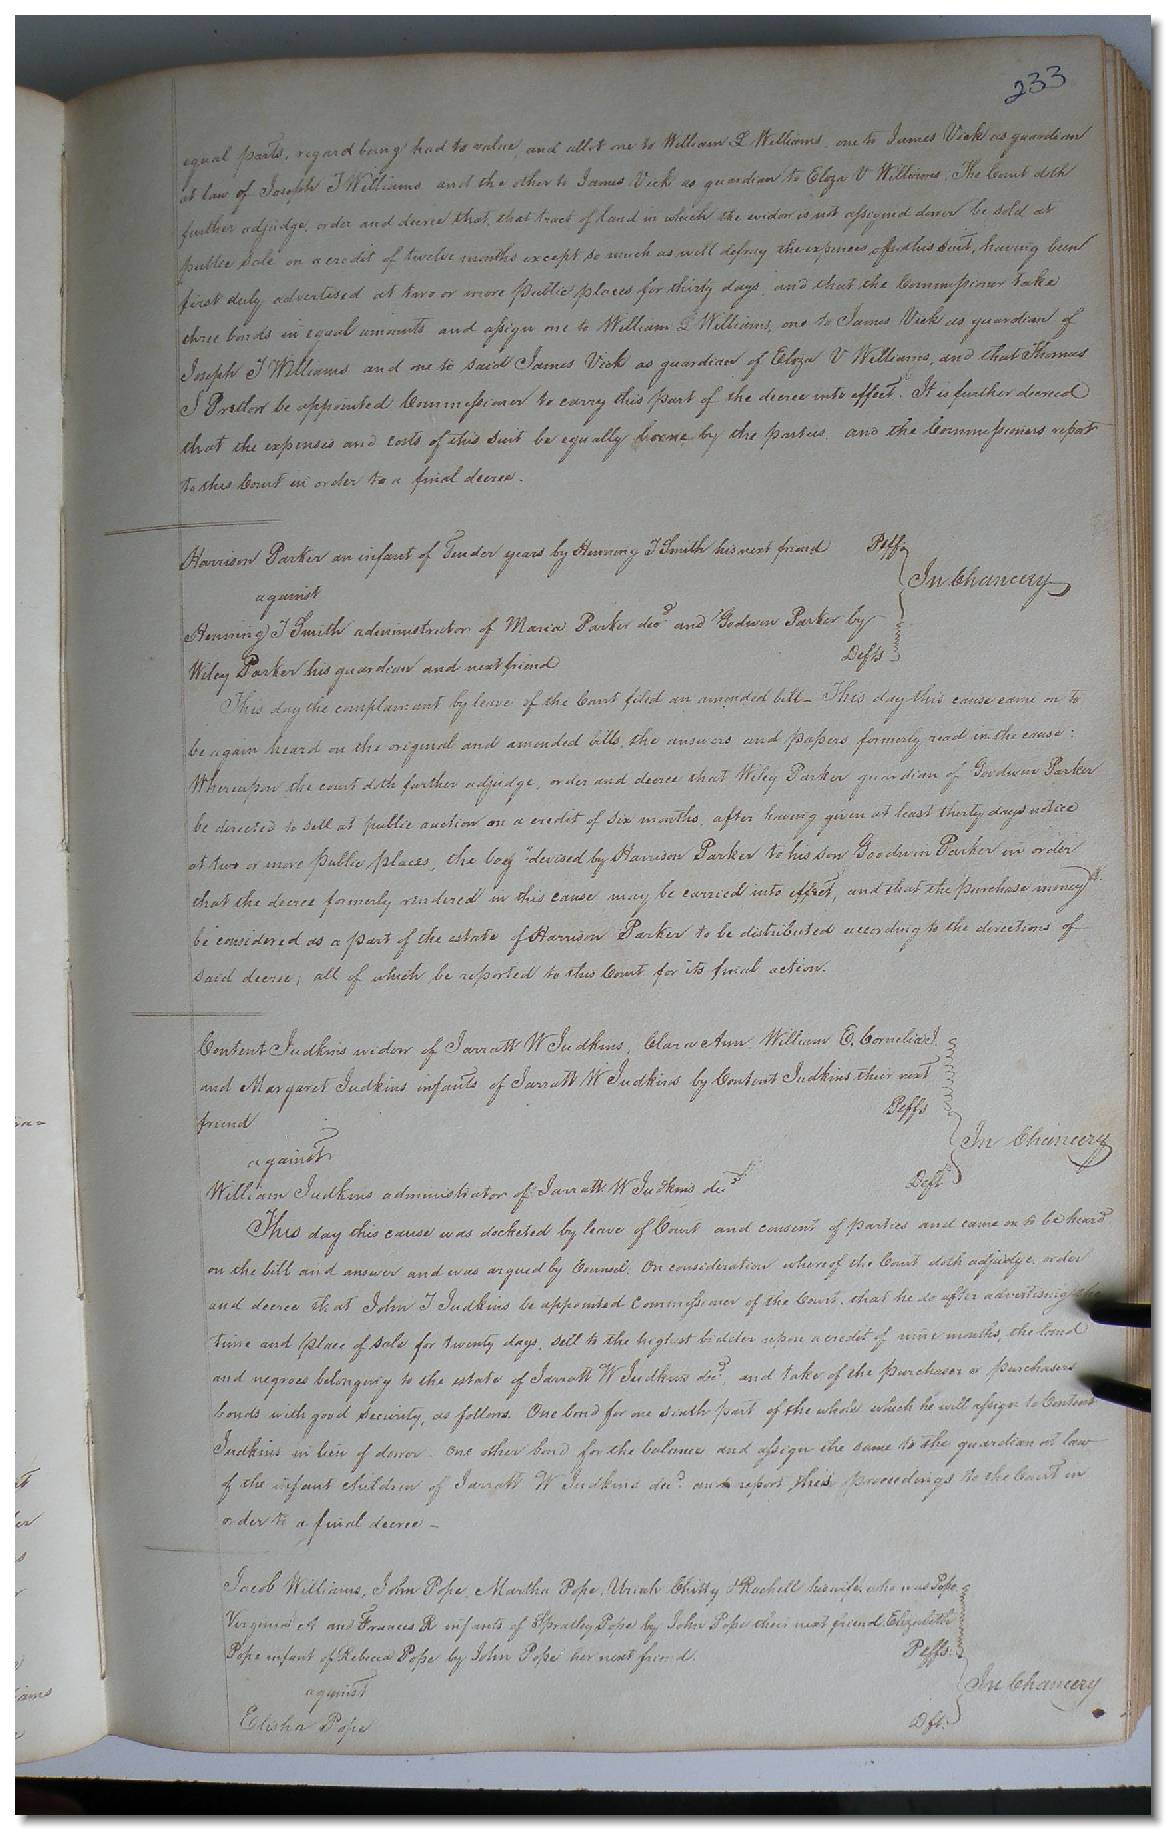 233
equal parts, regard being had to value, and allot one to William L Williams, one to James Vick as guardian
at law of Joseph T Williams and the other to James Vick as guardian to Eliza V Williams, The Court doth
further adjudge, order and decree that, that tract of land in which the widow is not assigned dower be sold at
public sale on a credit of twelve months except so much as will defray the expences of this suit, having been
first duly advertised at two or more public places for thirty days, and that the Commissioner take
three bonds in equal amounts and assign one to William L Williams, one to James Vick as guardian of
Joseph T Williams and one to said James Vick as guardian of Eliza V Williams, and that Thomas
be appointed Commissioner to carry this part of the decree into effect. It is further decreed
that the expenses and costs of this suit be equally borne by the parties, and the Commissioners report
to this Court in order to a final decree.
Harrison Parker an infant of Tender years by Henning T Smith his next friend Plffs
In Chancery
against
Henning T Smith administrator of Maria Parker decd and Godwin Parker by
Wiley Parker his guardian and next friend Defts
This day the complainant by leave of the Court filed an amended bill – This day this cause came on to
be again heard on the original and amended bills, the answers and papers formerly read in the cause:
Whereupon the court doth further adjudge, order and decree that Wiley Parker guardian of Goodwin Parker
be directed to sell at public auction on a credit of six months, after having given at least thirty days notice
at two or more public places, the boy devised by Harrison Parker to his son Goodwin Parker in order
that the decree formerly rendered in this cause may be carried into effect, and that the purchase money
be considered as a part of the estate of Harrison Parker to be distributed according to the directions of
said decree; all of which be reported to this Court for its final action.
Content Judkins widow of Jarratt W Judkins, Clara Ann, William E, Cornelia J.
and Margaret Judkins infants of Jarratt W Judkins by Content Judkins their next
friend Plffs
In Chancery
against
William Judkins administrator of Jarratt W Judkins decd Deft
This day this cause was docketed by leave of Court and consent of parties and came on to be heard
on the bill and answer and was argued by Counsel; On consideration whereof the Court doth adjudge, order
and decree that John T Judkins be appointed Commissioner of the Court, that he do after advertising the
time and place of sale for twenty days, sell to the highest bidder upon a credit of nine months, the land
and negroes belonging to the estate of Jarratt W Judkins decd, and take of the purchaser or purchasers
bonds with good security, as follows. One bond for one sixth part of the whole which he will assign to Content
Judkins in lieu of dower. One other bond for the balance and assign the same to the guardian at law
of the infant children of Jarratt W Judkins decd. and report his proceedings to the Court in
order to a final decree –
Jacob Williams, John Pope, Martha Pope, Uriah Chitty & Rachell his wife, who was Pope
Virginia A and Frances R infants of Spratley Pope by John Pope their next friend Elizabeth
Pope infant of Rebecca Pope by John Pope her next friend. Plffs
In Chancery
against
Elisha Pope Dft.